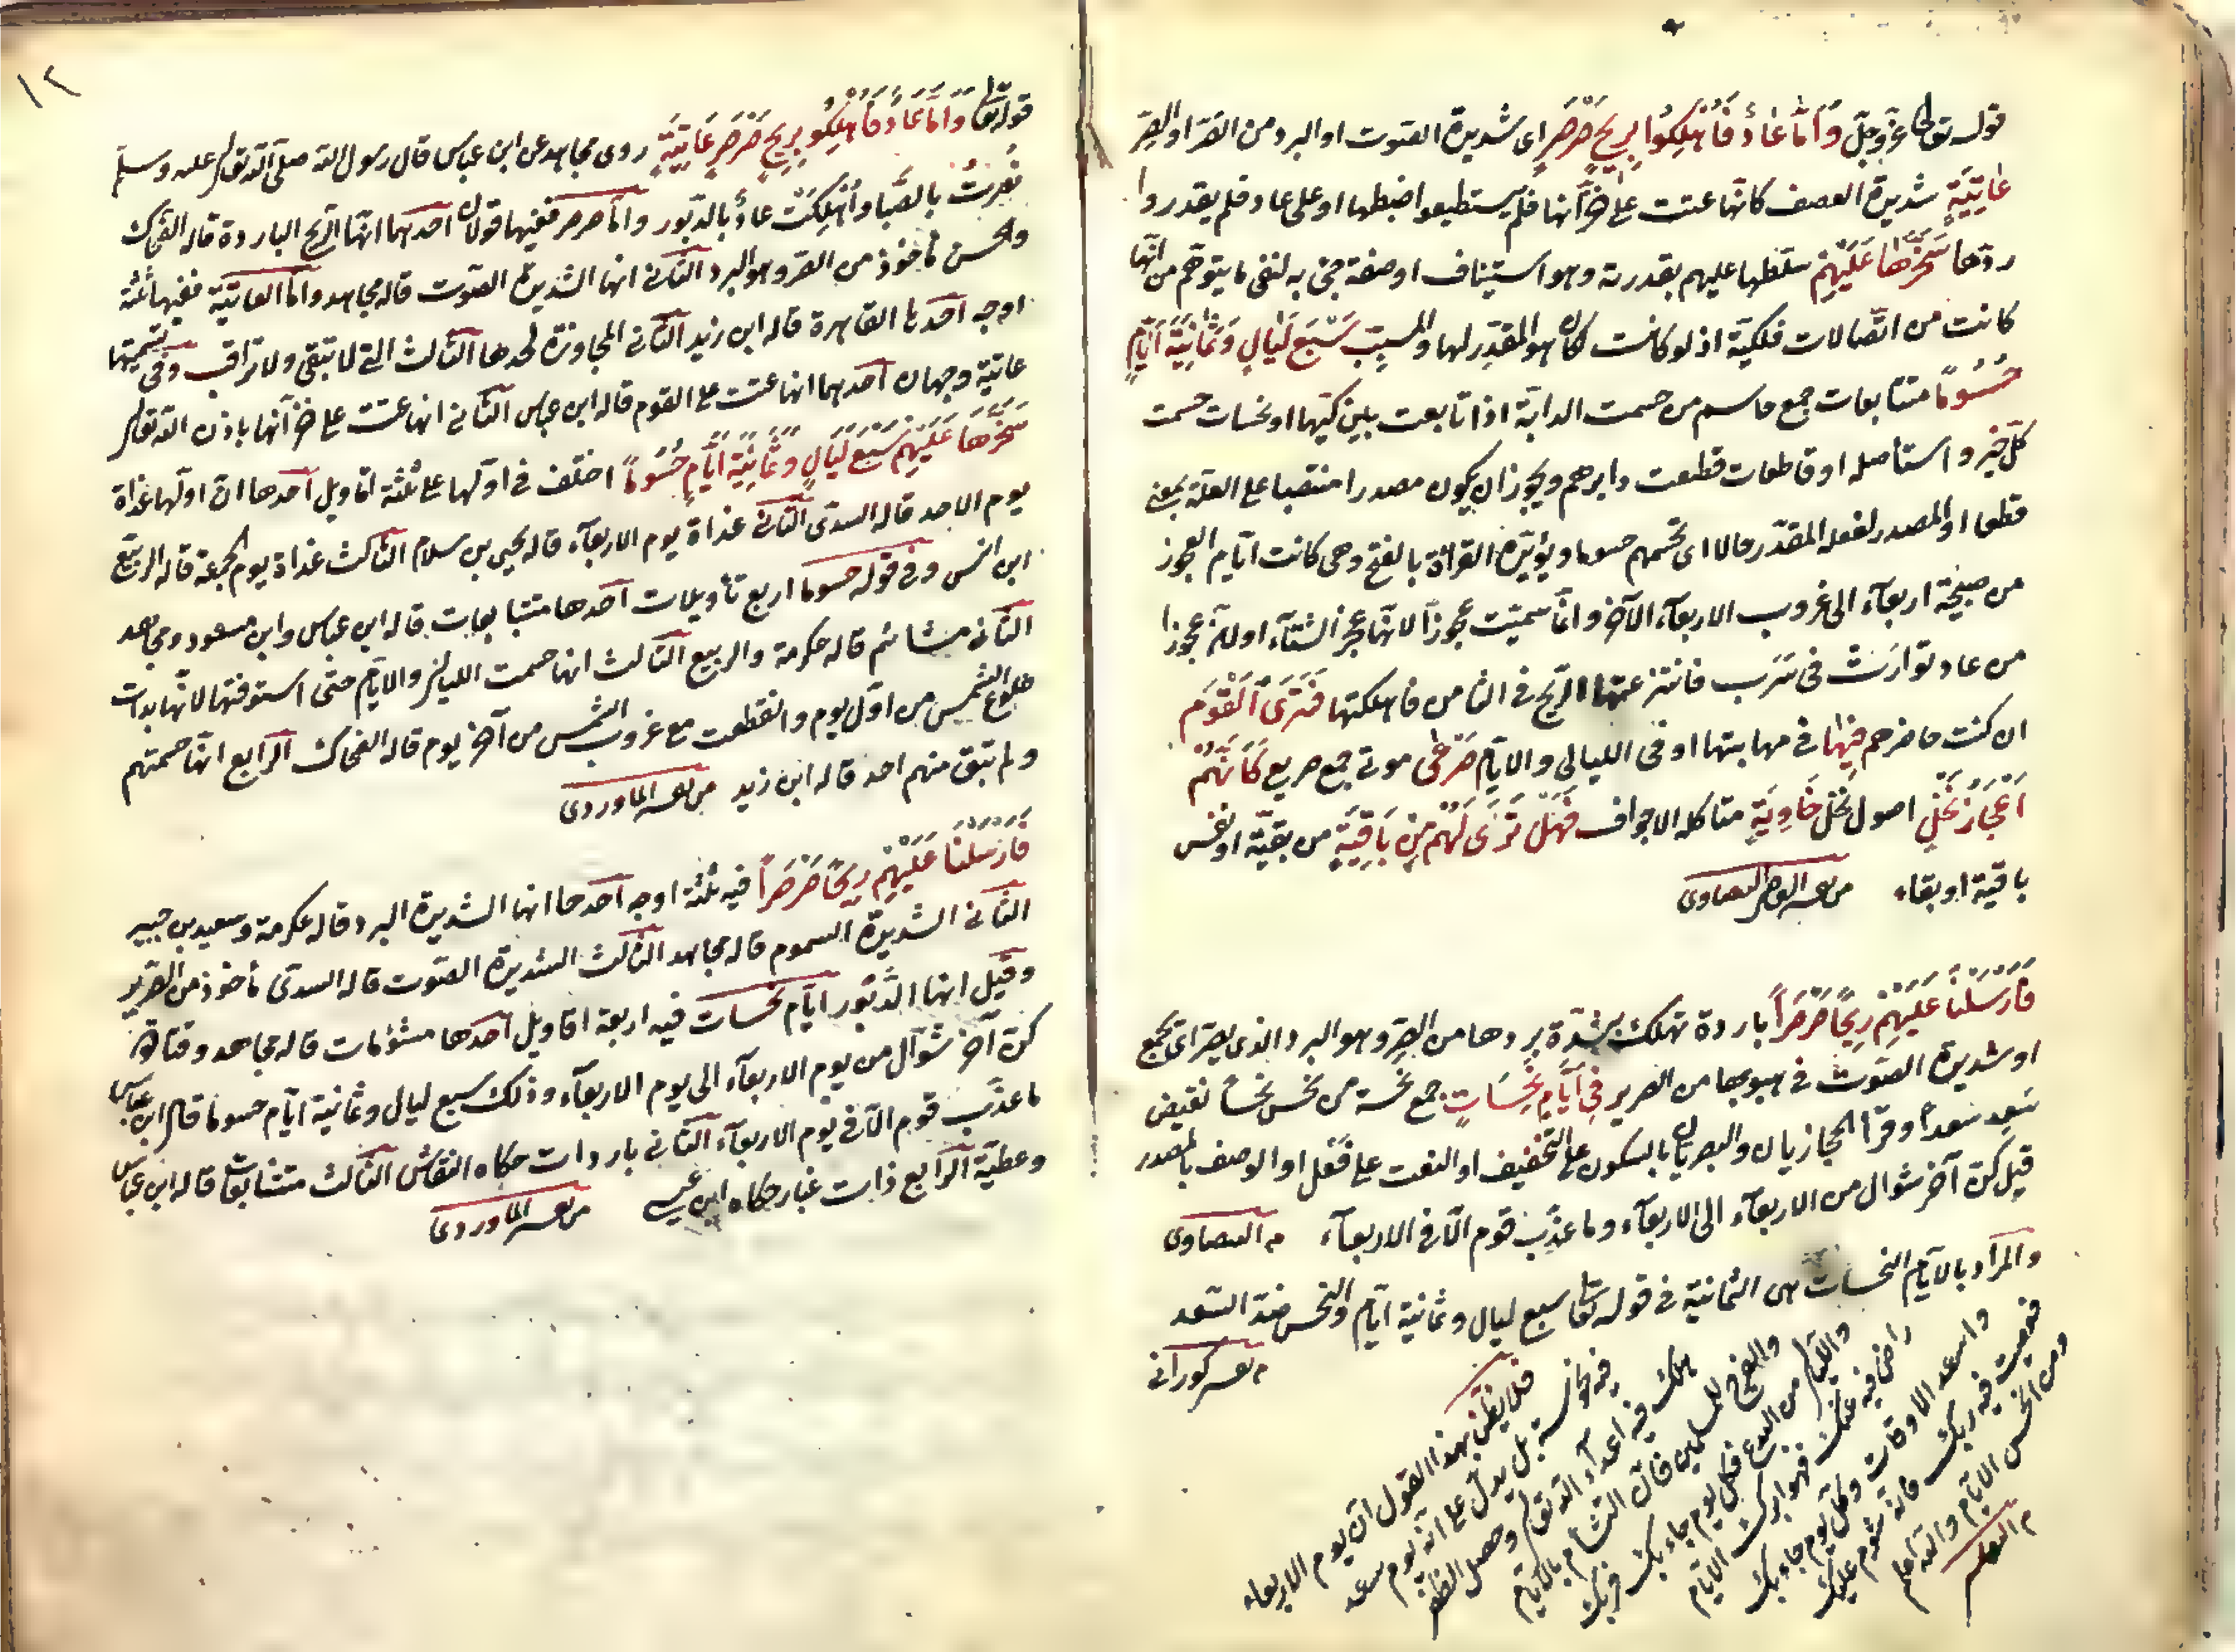 قوله تعالى عز وجل وَأَمَّا عَادٌ فَأُهْلِكُوا بِرِيحٍ صَرْصَرٍ اى شديدة الصوت او البرد من الصَّر او الصِّر
عَاتِيَةٍ شديدة العصف كانها عتت على خزّانها فلم يستطيعوا ضبطها او على عاد فلم يقدروا
ردّها سَخَّرَهَا عَلَيْهِمْ سلّطها عليهم بقدرته وهو استيناف او صفة جئ به لنفى ما يتوهّم من انّها
كانت من اتّصالات فلكيّة اذ لو كانت لكان هو المقدّر لها والمسبِّب سَبْعَ لَيَالٍ وَثَمَانِيَةَ أَيَّامٍ
حُسُوماً متتابعات جمع حاسم من حسمت الدابّة اذا تابعت بين كيّها او نحسات حسمت
كلّ خير واستأصله او قاطعات قطعت دابرهم ويجوز ان يكون مصدرا منتصبا على العلّة بمعنى
قطعا او المصدر لفعله المقدّر حالا اى تحسمهم حسوما ويؤيّده القراءة بالفتح وهى كانت ايّام العجوز
من صبيحة اربعاء الى غروب الاربعاء الآخر وانّما سمّيت عجوزاً لانّها عجز الشتاء او لانّ عجوزا
من عاد توارت فى سَرَب فانتزعتها الريح فى الثامن فاهلكتها فَتَرَى الْقَوْمَ
ان كنت حاضرهم فِيهَا فى مهابّها او فى الليالى والايّام صَرْعَى موتى جمع صريع كَأَنَّهُمْ
أَعْجَازُ نَخْلٍ اصول نخل خَاوِيَةٍ متأكلة الاجواف فَهَلْ تَرَى لَهُمْ مِنْ بَاقِيَةٍ من بقيّة او نفس
باقية او بقاء من تفسير البيضاوى
فَأَرْسَلْنَا عَلَيْهِمْ رِيحاً صَرْصَراً باردة تهلك بشدّة بردها من الصِّر وهو البرد الذى يصر اى يجمع
او شديدة الصوت فى هبوبها من الصرير فِي أَيَّامٍ نَحِسَاتٍ جمع نحسة من نحس نحساً نقيض
سَعِد سَعداً وقرأ الحجازيان والبصريان بالسكون على التخفيف او النعت على فَعْل او الوصف بالمصدر
قيل كنّ آخر شوال من الاربعاء الى الاربعاء وما عذّب قوم الّا فى الاربعاء م البيضاوى
والمراد بالايّام النحسات هى الثمانية فى قوله تعالى سبع ليال وثمانية ايّام والنحس ضدّ السّعد
م تفسير كورانى
فلا يظنّ بهذا القول انّ يوم الاربعاء
فيه نحاسة بل يدلّ على انّه يوم سعد
هلك فيه اعداء الله تعالى وحصل الظفر
والفرح للمسلمين فانّ التشأم بالايّام
والليالى من البدع فكل يوم جاء بك فربّك
راض فيه عنك فهو ابرك الايّام
واسعد الاوقات وكلّ يوم جاء بك
فعصيت فيه ربّك فانه شؤم عليك
ومن انحس الايّام والله اعلم
١٢
قوله تعالى وَأَمَّا عَادٌ فَأُهْلِكُوا بِرِيحٍ صَرْصَرٍ عَاتِيَةٍ روى مجاهد عن ابن عباس قال رسول الله صلى الله تعالى عليه وسلم
نُصِرتُ بالصَّبا وأُهْلِكَتْ عادٌ بالدّبور وامّا صرصر ففيها قولان احدهما انّها الريح الباردة قاله الضحاك
والحسن مأخوذ من الصر وهو البرد الثانى انها الشديدة الصوت قاله مجاهد وامّا العاتية ففيها ثلثة
اوجه احدها القاهرة قاله ابن زيد الثانى المجاوزة لحدها الثالث التى لا تبقى ولا تراقب وفى تسميتها
عاتية وجهان احدهما انها عتت على القوم قاله ابن عباس الثانى انها عتت على خزّانها باذن الله تعالى
سَخَّرَهَا عَلَيْهِمْ سَبْعَ لَيَالٍ وَثَمَانِيَةَ أَيَّامٍ حُسُوماً اختلف فى اوّلها على ثلثة اقاويل احدها انّ اولها غداة
يوم الاحد قاله السدى الثانى غداة يوم الاربعاء قاله يحيى بن سلام الثالث غداة يوم الجمعة قاله الربيع
ابن انس وفى قوله حسوما اربع تأويلات احدها متتابعات قاله ابن عباس وابن مسعود ومجاهد
الثانى مشائم قاله عكرمة والربيع الثالث انها حسمت الليالى والايّام حتى استوفتها لانّها بدأت
طلوع الشمس من اوّل يوم وانقطعت مع غروب الشمس من آخر يوم قاله الضحاك الرابع انّها حسمتهم
ولم تبق منهم احد قاله ابن زيد من تفسير الماوردى
فَأَرْسَلْنَا عَلَيْهِمْ رِيحاً صَرْصَراً فيه ثلثة اوجه احدها انها الشديدة البرد قاله عكرمة وسعيد بن جبير
الثانى الشديدة السموم قاله مجاهد الثالث الشديدة الصوت قاله السدى مأخوذ من الصرير
وقيل انها الدّبور ايّام نحسات فيه اربعة اقاويل احدها مشئومات قاله مجاهد وقتادة
كنّ آخر شوّال من يوم الاربعاء الى يوم الاربعاء وذلك سبع ليال وثمانية ايّام حسوما قال ابن عباس
ما عذّب قوم الّا فى يوم الاربعاء الثانى باردات حكاه النقاش الثالث متتابعات قاله ابن عباس
وعطيّة الرابع ذات غبار حكاه ابن عيسى من تفسير الماوردى